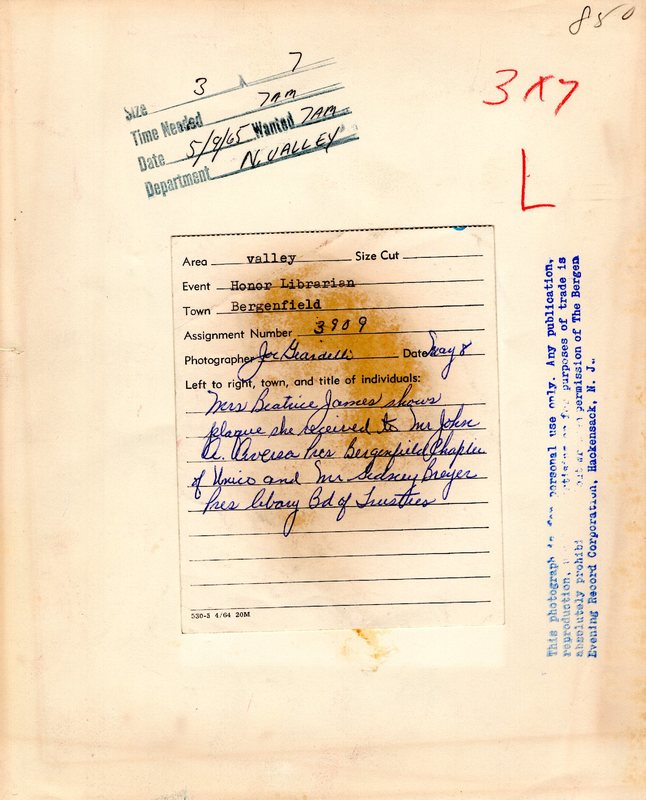 850
3 x 7
L
Size 3 x 7
Time Needed 7AM
Date 5/9/65 Wanted 7AM
Department N. VALLEY
Area valley Size Cut
Event Honor Librarian
Town Bergenfield
Assignment Number 3909
Photographer Joe Giardelli Date May 8
Left to right, town, and title of individuals:
Mrs Beatrice James shows
plaque she received to Mr John
A. Aversa Pres Bergenfield Chapter
of Unico and Mr Sidney Breyer
Pres libary Bd of Trustees
530-5 4/64 20M
This photograph is for personal use only. Any publication,
reproduction, purposes of trade is
absolutely prohibi permission of The Bergen
Evening Record Corporation, Hackensack, N. J.